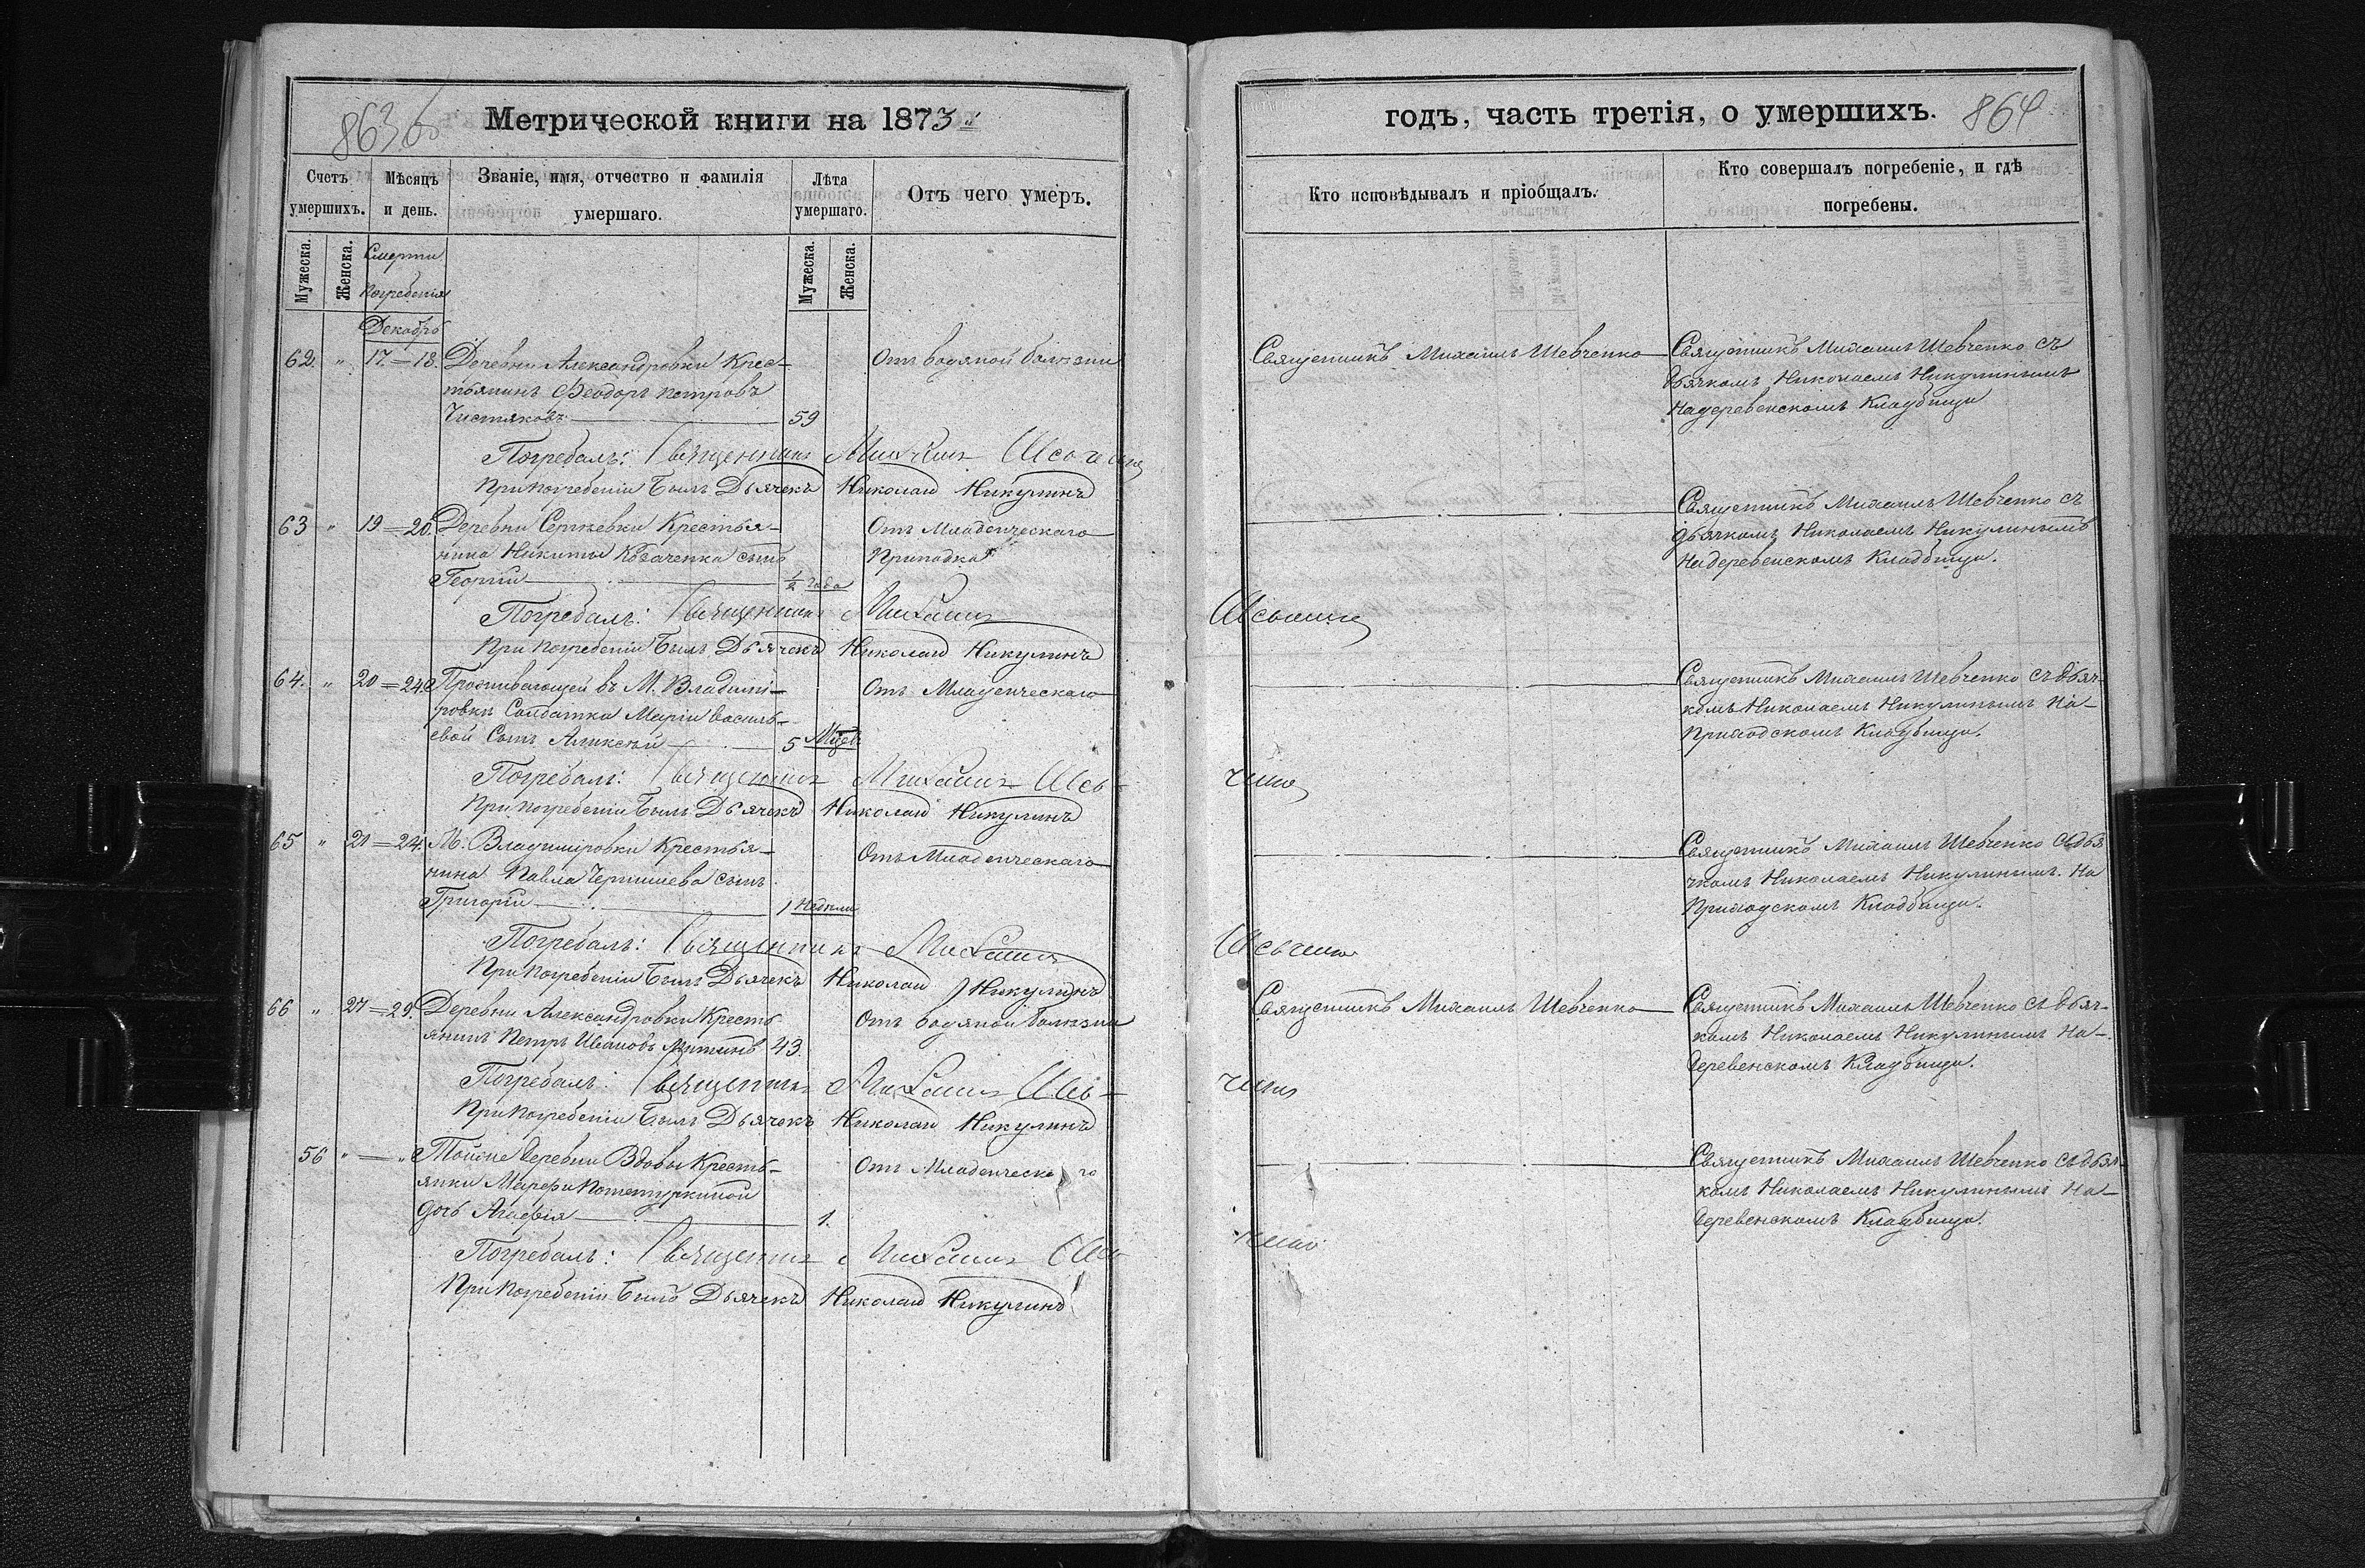 863 об
Метрической книги на 1873 й
Счетъ умершихъ.
Мѣсяцъ и день.
Званіе, имя, отчество и фамилія умершаго.
Лѣта умершаго.
Отъ чего умеръ.
Мужеска.
Женска.
Смерти
Погребенія
Мужеска.
Женска.
Декабрь
62. " 17.=18. Деревни Александровки Крес-
тьянинъ Феодоръ Петровъ
Чистяковъ 59
Отъ водяной болѣзни
Погребалъ: Священникъ Михаилъ Шевченко
При погребеніи былъ Дьячекъ Николай Никулинъ
63 " 19=20. Деревни Сергѣевки Крестья-
нина Никиты Косаченка сынъ
Георгій 1/2 года
Отъ Младенческаго
Припадка
Погребалъ: Священникъ Михаилъ
При погребеніи былъ Дьячекъ Николай Никулинъ
64. " 20=24. Проживающей въ М. Владимі-
ровки Солдатки Маріи Василь-
евой Сынъ Алексѣй 5 Мцев
Отъ Младенческаго
Погребалъ: Священникъ Михаилъ Шев-
При погребеніи былъ Дьячекъ Николай Никулинъ
65 " 21=24. М. Владиміровки Крестья-
нина Павла Чернышева сынъ
Григорій 1 Недели
Отъ Младенческаго
Погребалъ: Священникъ Михаилъ
При погребеніи былъ Дьячекъ Николай Никулинъ
66 " 27=29. Деревни Александровки Кресть-
янинъ Петръ Ивановъ 43.
Отъ водяной болѣзни
Погребалъ: Священникъ Михаилъ Шев-
При погребеніи былъ Дьячекъ Николай Никулинъ
56 " — " Тойже деревни Вдовы Кресть-
янки Марфы
дочь Агафія 1.
Отъ Младенческаго
Погребалъ: Священникъ Михаилъ Шев
При погребеніи былъ Дьячекъ Николай Никулинъ
годъ, часть третія, о умершихъ.
864
Кто исповѣдывалъ и пріобщалъ.
Кто совершалъ погребеніе, и гдѣ погребены.
Священникъ Михаилъ Шевченко
Священникъ Михаилъ Шевченко съ
дьячкомъ Николаемъ Никулинымъ
на деревенскомъ Кладбищи
Священникъ Михаилъ Шевченко съ
дьячкомъ Николаемъ Никулинымъ
на деревенскомъ Кладбищи.
Шевченко
Священникъ Михаилъ Шевченко съ дьяч-
комъ Николаемъ Никулинымъ на-
приходскомъ Кладбищи.
ченко
Священникъ Михаилъ Шевченко съ дья
чкомъ Николаемъ Никулинымъ. на
приходскомъ Кладбищи.
Шевченко
Священникъ Михаилъ Шевченко
Священникъ Михаилъ Шевченко съ дьяч-
комъ Николаемъ Никулинымъ на-
деревенскомъ Кладбищи.
ченко
Священникъ Михаилъ Шевченко съ дьяч-
комъ Николаемъ Никулинымъ на-
деревенскомъ Кладбищи.
ченко